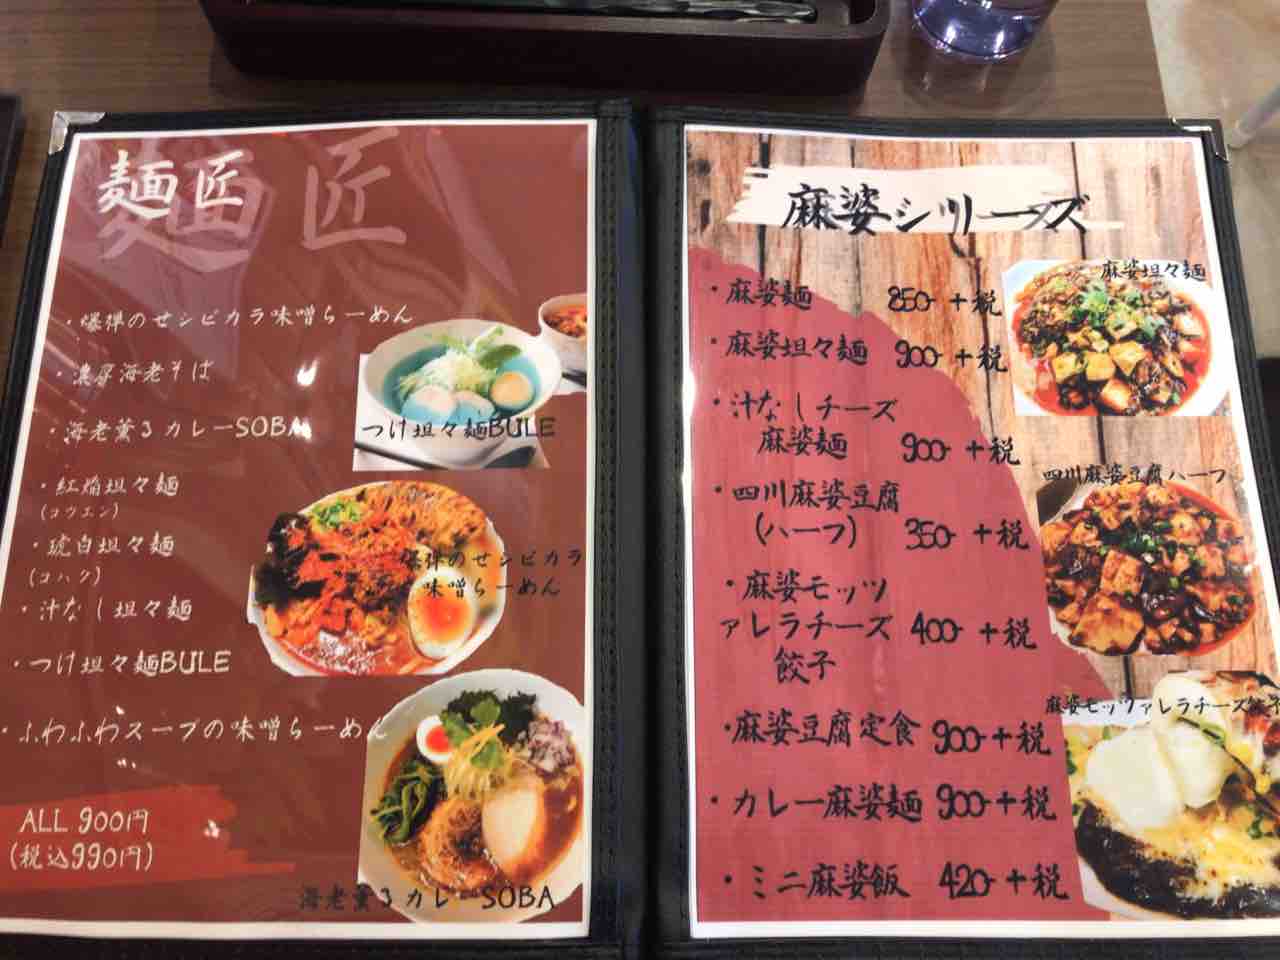 麺匠
麺匠
・爆弾のせシビカラ味噌らーめん
・濃厚海老そば
・海老薫るカレーSOBA
・紅焔坦々麺
(コウエン)
・琥白坦々麺
(コハク)
・汁なし坦々麺
・つけ坦々麺BULE
・ふわふわスープの味噌らーめん
ALL 900円
(税込990円)
つけ坦々麺BULE
爆弾のせシビカラ
味噌らーめん
海老薫るカレーSOBA
麻婆シリーズ
・麻婆麺 850-+税
・麻婆坦々麺 900-+税
・汁なしチーズ
麻婆麺 900-+税
・四川麻婆豆腐
(ハーフ) 350-+税
・麻婆モッツ
ァレラチーズ 400-+税
餃子
・麻婆豆腐定食 900-+税
・カレー麻婆麺 900-+税
・ミニ麻婆飯 420-+税
麻婆坦々麺
四川麻婆豆腐ハーフ
麻婆モッツァレラチーズ餃子